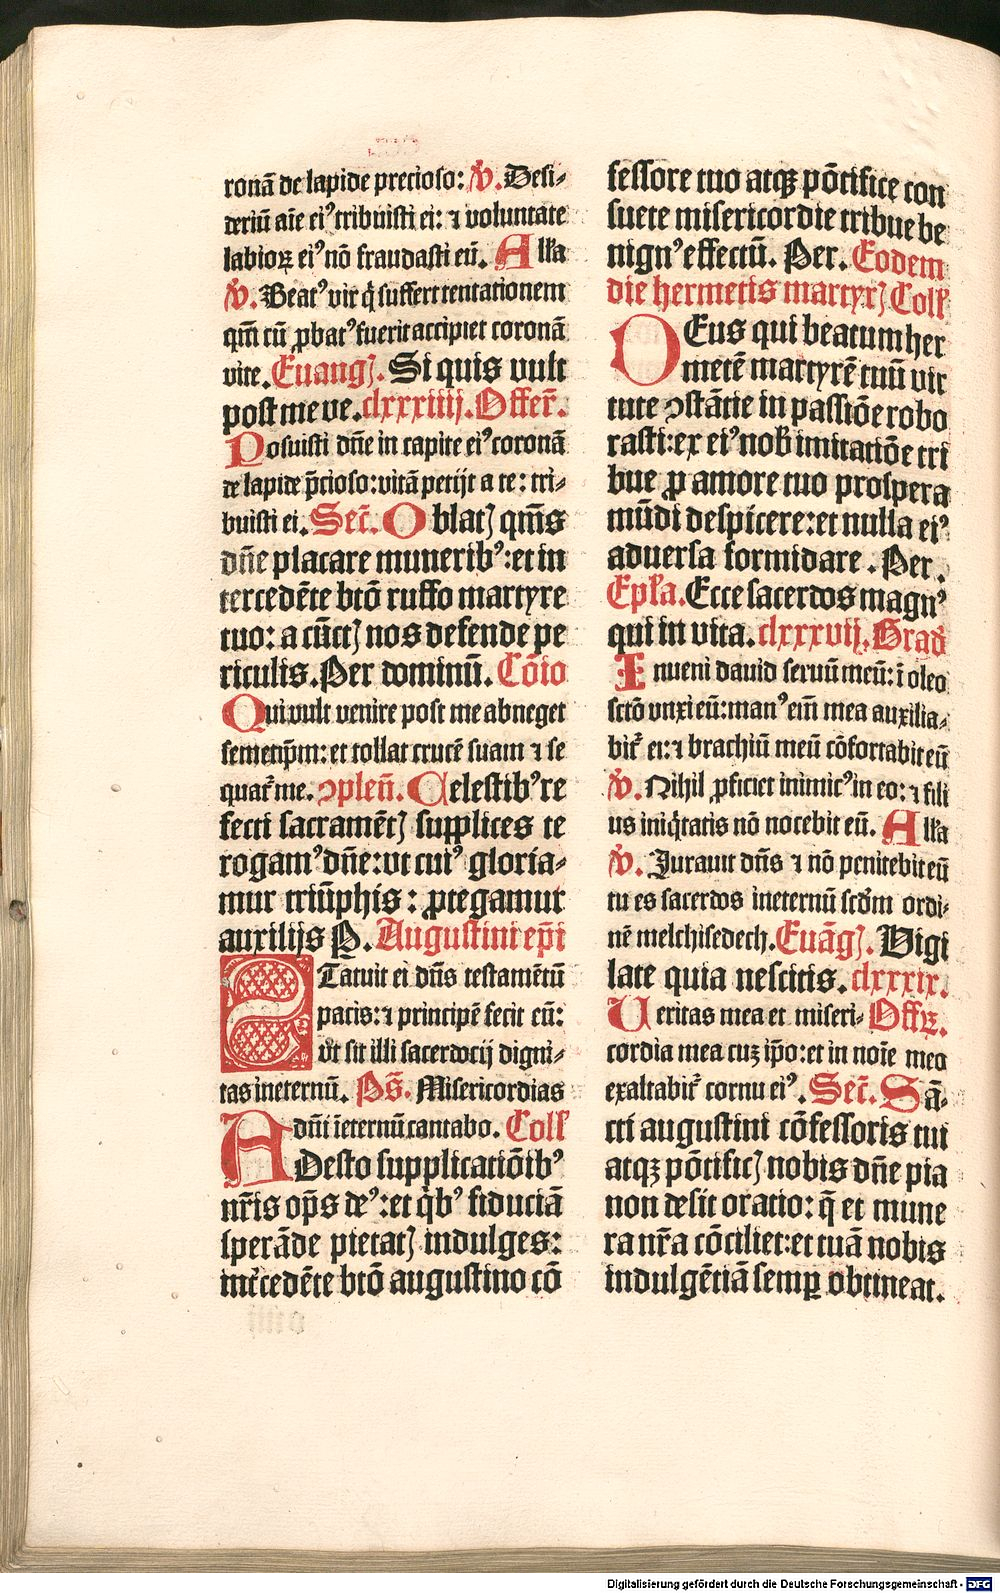 ronā de lapide precioso: ℣. Desi⸗
deriū aīe eiꝰ tribuisti ei: ⁊ voluntate
labioꝝ eiꝰ nō fraudasti eū. Alľa
℣. Beatꝰ vir q̇ suffert tentationem
qm̄ cū ꝓbatꝰ fuerit accipiet coronā
vite. Euangꝭ. Si quis vult
post me ve. clxxxiiij. Offer̄.
Posuisti dn̄e in capite eiꝰ coronā
de lapide p̄cioso: vitā petijt a te: tri⸗
buisti ei. Secr̄. Oblatꝭ qm̄s
dn̄e placare muneribꝰ: et in
tercedēte btō ruffo martyre
tuo: a cūctꝭ nos defende pe
riculis. Per dominū. Cōio
Qui vult venire post me abneget
semetip̄m: et tollat crucē suam ⁊ se
quat̄ me. ꝯpleñ. Celestibꝰ re
fecti sacramētꝭ supplices te
rogamꝰ dn̄e: vt cuiꝰ gloria⸗
mur triūphis: ꝓtegamur
auxilijs P. Augustini ep̄i
STatuit ei dn̄s testamētū
pacis: ⁊ principē fecit eū:
vt sit illi sacerdocij digni⸗
tas ineternū. Ps̄. Misericordias
dn̄i ieternū cantabo. Coll̄
ADesto supplicatiōibꝰ
nr̄is op̄s deꝰ: et q̇bꝰ fiduciā
sperāde pietatꝭ indulges:
int̄cedēte btō augustino cō
fessore tuo atqꝫ pōtifice con
suete misericordie tribue be
nignꝰ effectū. Per. Eodem
die hermetis martyrꝭ Coll̄
DEus qui beatum her
metē martyrē tuū vir
tute ꝯstātie in passiōe robo
rasti: ex eiꝰ nob̄ imitatiōe tri
bue ꝓ amore tuo prospera
mūdi despicere: et nulla eiꝰ
aduersa formidare. Per.
Epľa. Ecce sacerdos magnꝰ
qui in vita. clxxxvij. Grad̄
Inueni dauid seruū meū: ī oleo
sctō vnxi eū: manꝰ em̄ mea auxilia⸗
bit̄ ei: ⁊ brachiū meū cōfortabit eū
℣. Nihil ꝓficiet inimicꝰ in eo: ⁊ fili
us iniq̇tatis nō nocebit eū. Alľa
℣. Jurauit dn̄s ⁊ nō penitebit eū
tu es sacerdos ineternū scd̄m ordi⸗
nē melchisedech. Euāgꝭ. Vigi
late quia nescitis. clxxxix.
Veritas mea et miseri⸗ Offꝝ.
cordia mea cuꝫ ip̄o: et in noīe meo
exaltabit̄ cornu eiꝰ. Secr̄. Sā⸗
cti augustini cōfessoris tui
atqꝫ pōtificꝭ nobis dn̄e pia
non desit oratio: q̄ et mune
ra nr̄a cōciliet: et tuā nobis
indulgētiā semꝑ obtineat.
Digitalisierung gefördert durch die Deutsche Forschungsgemeinschaft - DFG